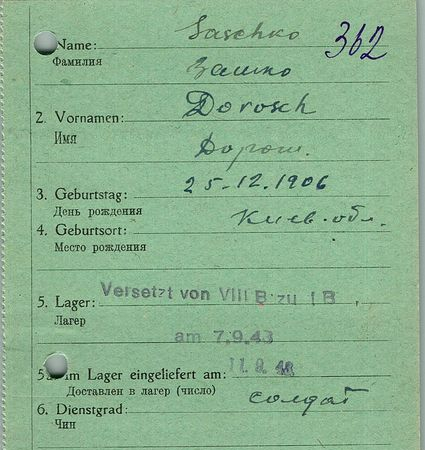 Name: Saschko 362
Фамилия Зашко
2. Vornamen: Dorosch
Имя Дорош.
3. Geburtstag: 25-12.1906
День рождения
4. Geburtsort: Киев. обл.
Место рождения
5. Lager: Versetzt von VIII B zu I B
Лагер am 7.9.43
im Lager eingeliefert am: 11.9.43
Доставлен в лагер (число)
6. Dienstgrad: солдат
Чин